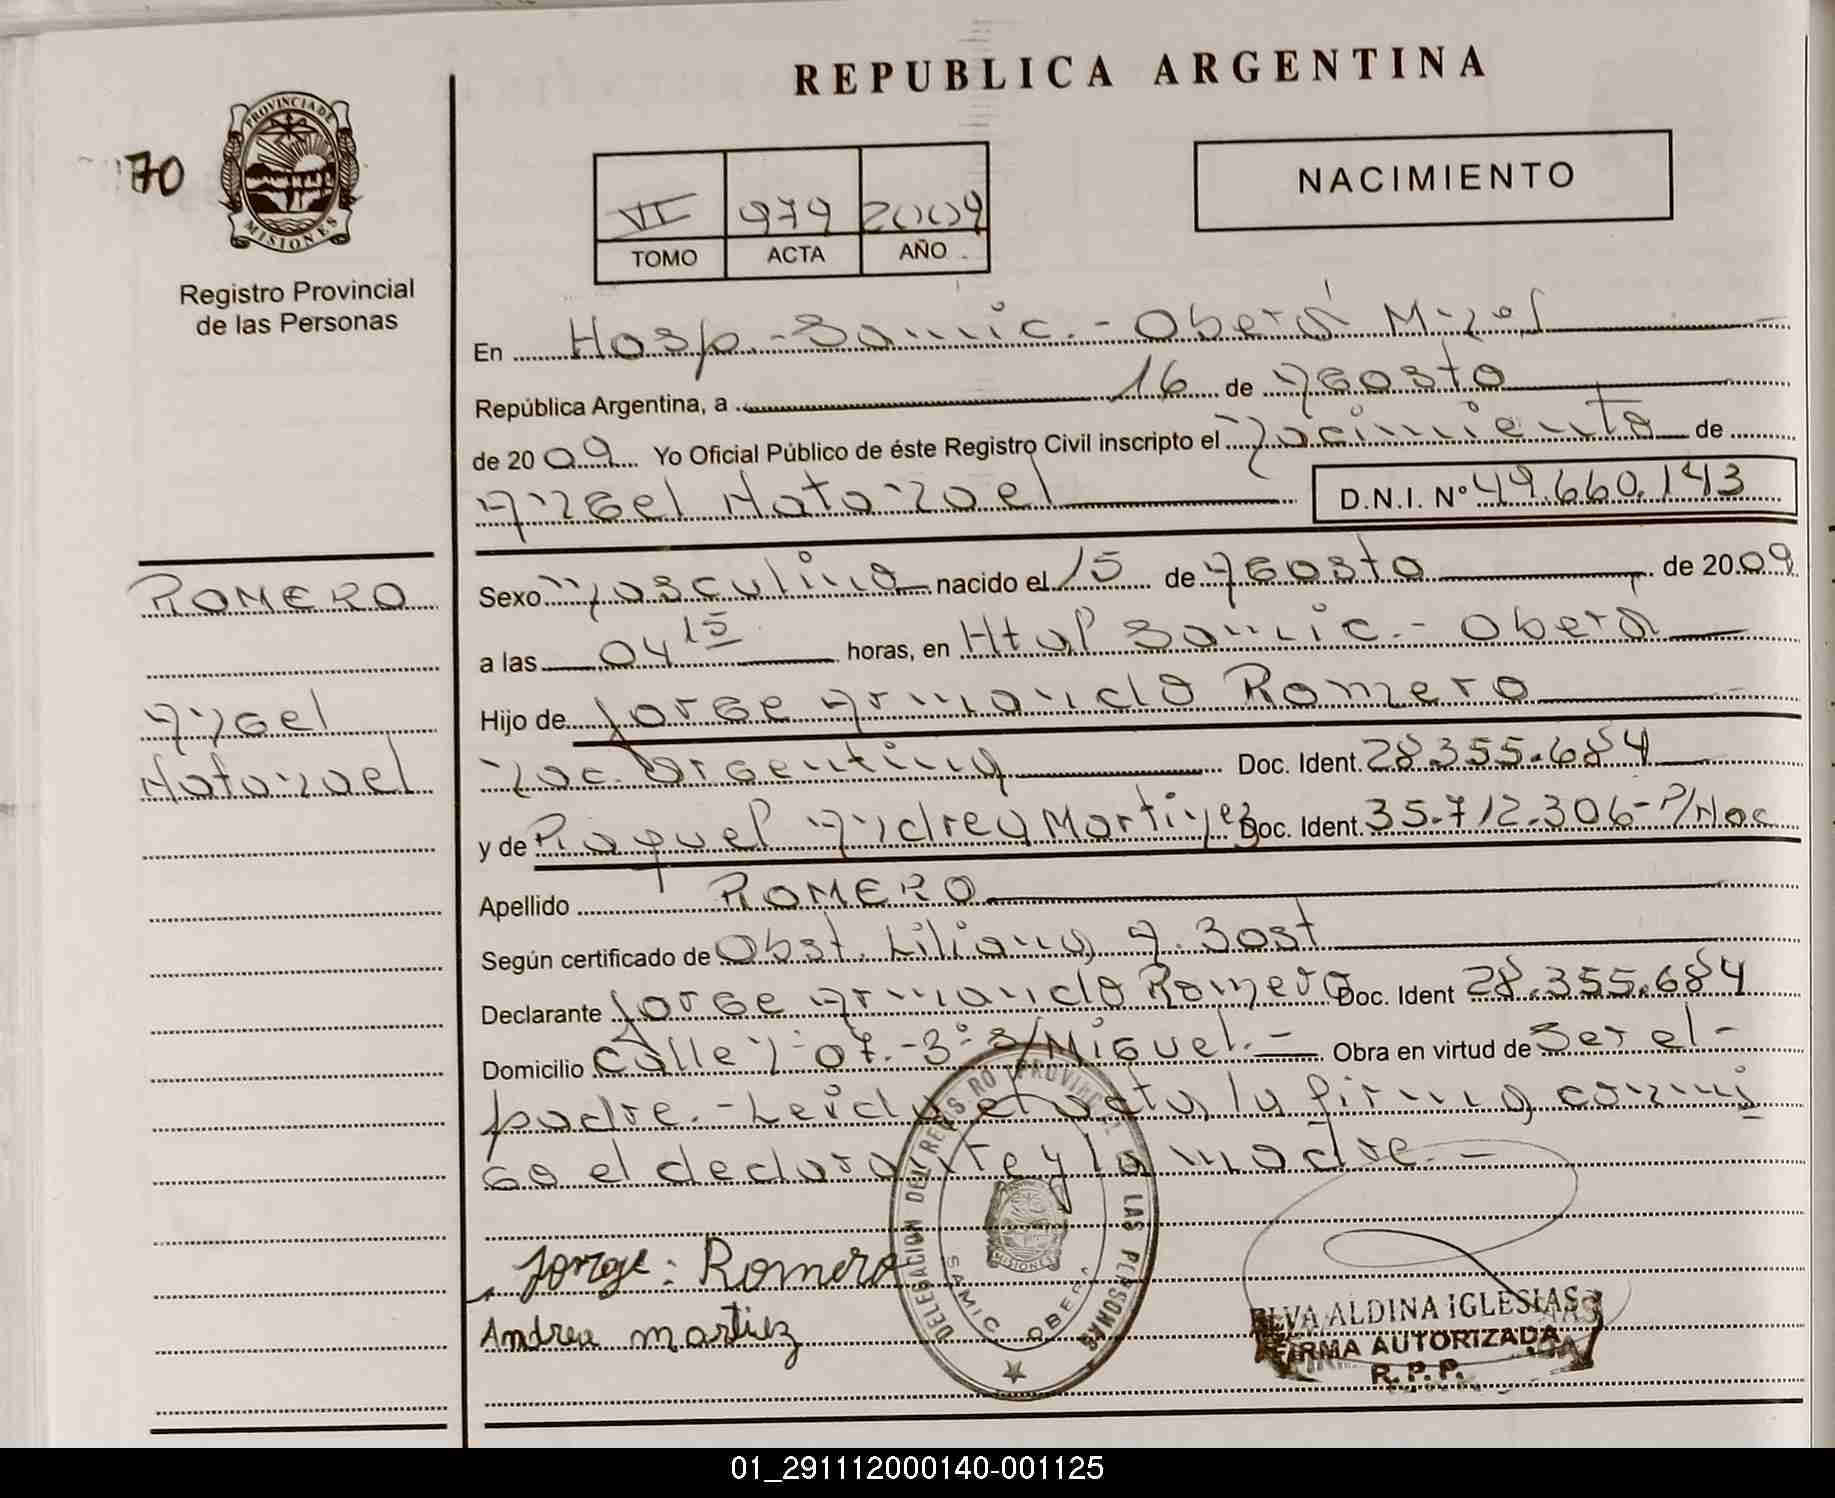 REPUBLICA ARGENTINA
70
PROVINCIA DE
MISIONES
Registro Provincial
de las Personas
VI 979 2009
TOMO ACTA AÑO
NACIMIENTO
En Hosp. Samic.- Oberá Mnes
República Argentina, a 16 de Agosto
de 2009 Yo Oficial Público de éste Registro Civil inscripto el Nacimiento de
Angel Natanael D.N.I. Nº 49.660.143
ROMERO
Angel
Natanael
Sexo Masculino nacido el 15 de Agosto de 2009
a las 04 15 horas, en Htal Samic.- Oberá
Hijo de Jorge Armando Romero
Nac. Argentina Doc. Ident. 28.355.684
y de Raquel Andrea Martinez Doc. Ident. 35.712.306-P/Nac
Apellido ROMERO
Según certificado de Obst. Liliana A. Bost
Declarante Jorge Armando Romero Doc. Ident 28.355.684
Domicilio Calle Nº 07.-Bº S/Miguel.- Obra en virtud de Ser el-
padre.-Leida el acta, la firma conmi
go el declarante y la madre.-
DELEGACION DEL REGISTRO PROVINCIAL DE LAS PERSONAS
MISIONES
SAMIC OBERA
Jorge: Romero
Andrea martiez
ELVA ALDINA IGLESIAS
FIRMA AUTORIZADA
R.P.P.
01_291112000140-001125